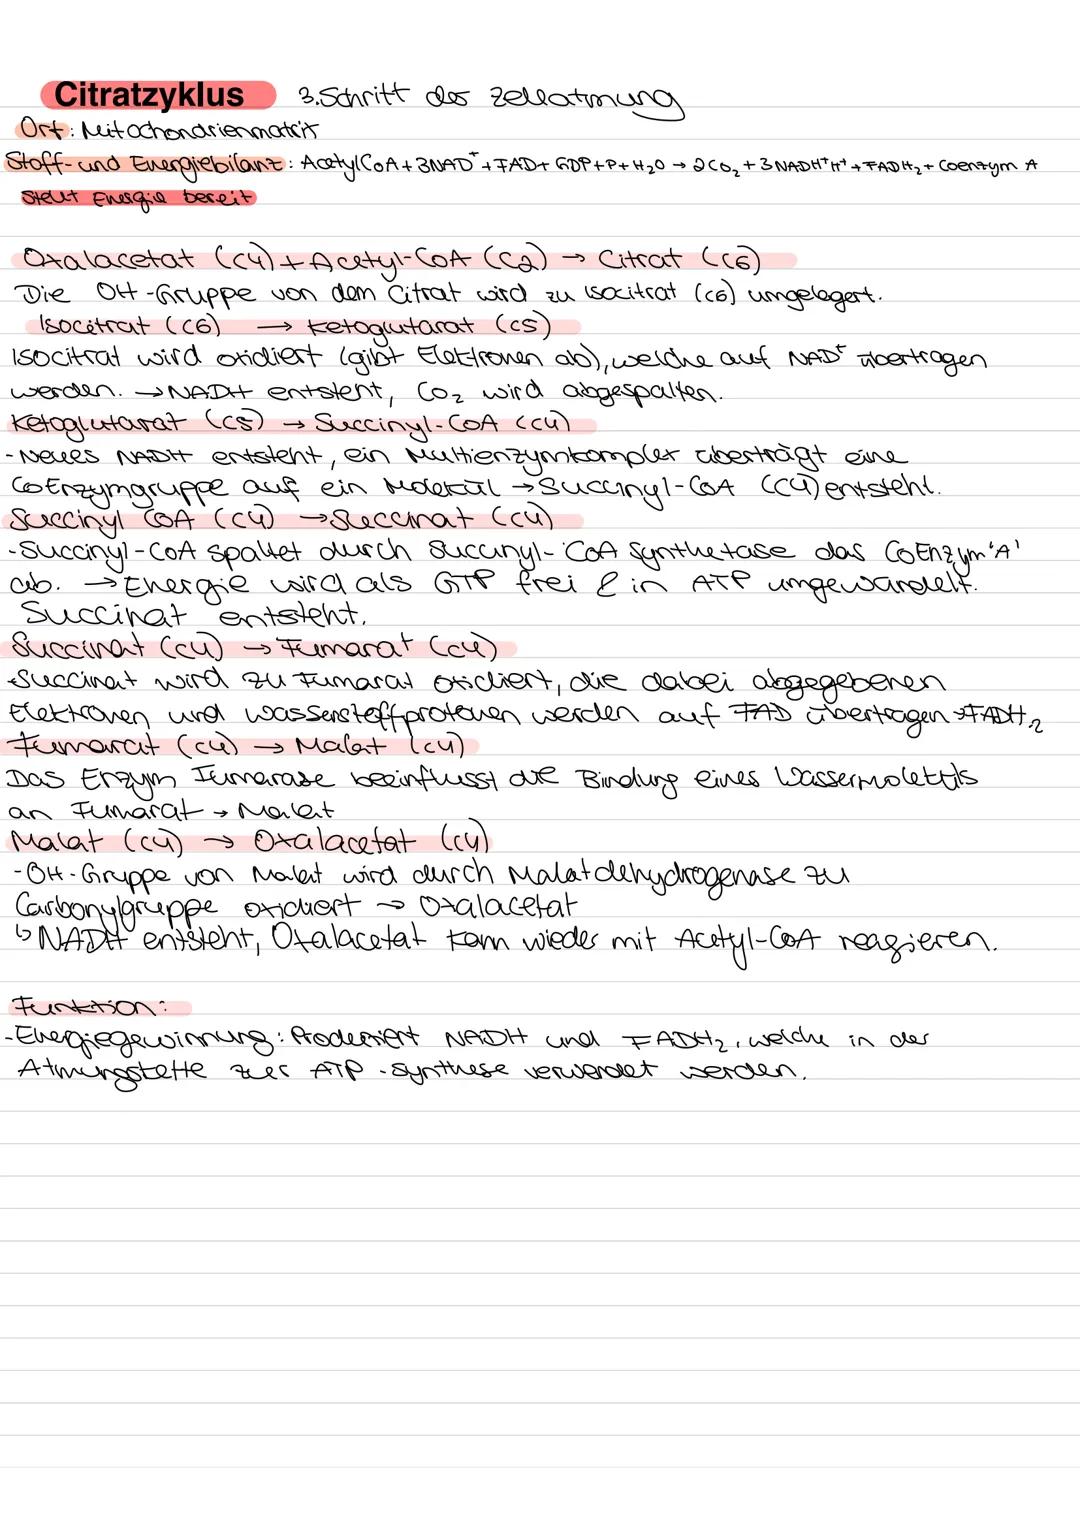 Citratzyklus 3. Schritt der Zellatmung
Ort: Mitochondrienmatrix
Stoff- und Energiebilanz: AcetylCoA + 3NAD⁺ + FAD + GDP + P + H₂O → 2CO₂ + 3NADH⁺H⁺ + FADH₂ + Coenzym A
stellt Energie bereit
Oxalacetat (C4) + Acetyl-CoA (C2) → Citrat (C6)
Die OH-Gruppe von dem Citrat wird zu Isocitrat (C6) umgelagert.
Isocitrat (C6) → Ketoglutarat (C5)
Isocitrat wird oxidiert (gibt Elektronen ab), welche auf NAD⁺ übertragen
werden. → NADH entsteht, CO₂ wird abgespalten.
Ketoglutarat (C5) → Succinyl-CoA (C4)
- Neues NADH entsteht, ein Multienzymkomplex überträgt eine
CoEnzymgruppe auf ein Molekül → Succinyl-CoA (C4) entsteht.
Succinyl CoA (C4) → Succinat (C4)
- Succinyl-CoA spaltet durch Succinyl-CoA Synthetase das CoEnzym 'A'
ab. → Energie wird als GTP frei & in ATP umgewandelt.
Succinat entsteht.
Succinat (C4) → Fumarat (C4)
- Succinat wird zu Fumarat oxidiert, die dabei abgegebenen
Elektronen und Wasserstoffprotonen werden auf FAD übertragen → FADH₂
Fumarat (C4) → Malat (C4)
Das Enzym Fumarase beeinflusst die Bindung eines Wassermoleküls
an Fumarat → Malat
Malat (C4) → Oxalacetat (C4)
- OH-Gruppe von Malat wird durch Malatdehydrogenase zu
Carbonylgruppe oxidiert → Oxalacetat
↳ NADH entsteht, Oxalacetat kann wieder mit Acetyl-CoA reagieren.
Funktion:
- Energiegewinnung: Produziert NADH und FADH₂, welche in der
Atmungskette zur ATP-Synthese verwendet werden.